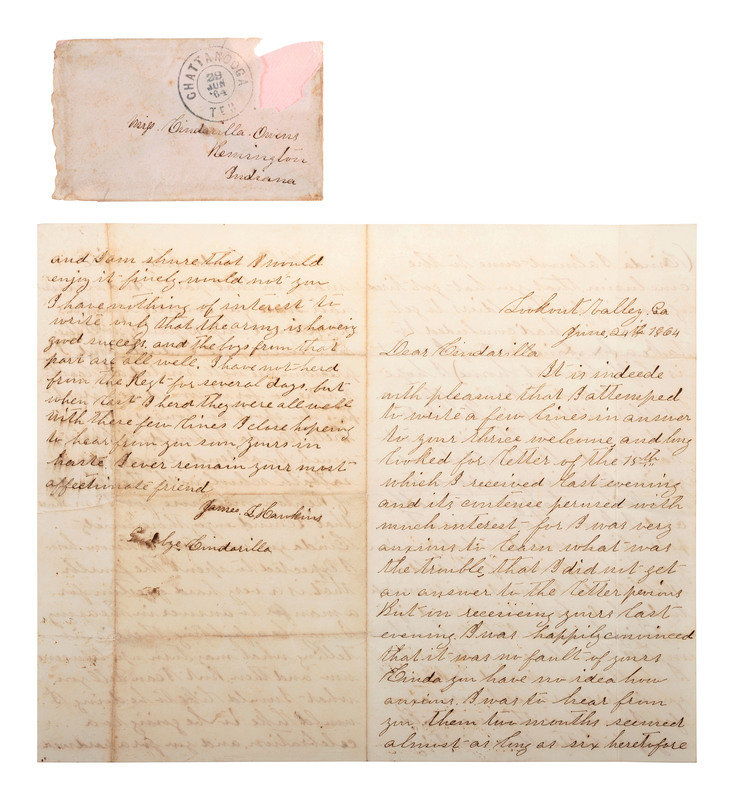 CHATTANOOGA
29
JUN
'64
TEN
Miss. Cindarilla. Owens
Remington
Indiana
and I am shure that I would
enjoy it finely would not you
I have nothing of interest to
write only that the army is haveing
good success, and the boys from that
part are all well. I have not herd
from the Regt for several days, but
when last I herd they were all well
With these few lines I close hopeing
to hear from you soon yours in
haste. I ever remain your most
affectinate friend
James. L. Hawkins
Good bye Cindarilla
Lookout Valley. Ga
June, 24th 1864
Dear Cindarilla
It is indeede
with pleasure that I attemped
to write a few lines in answer
to your thrice welcome, and long
looked for letter of the 15th.
which I received last evening
and its contense perused with
much interest for I was very
anxious to learn what was
the trouble, that I did not get
an answer to the letter
But on receiveing yours last
evening I was happily convinced
that it was no fault of yours
Cinda you have no idea how
anxious. I was to hear from
you, them two months seemed
almost as long as six heretofore